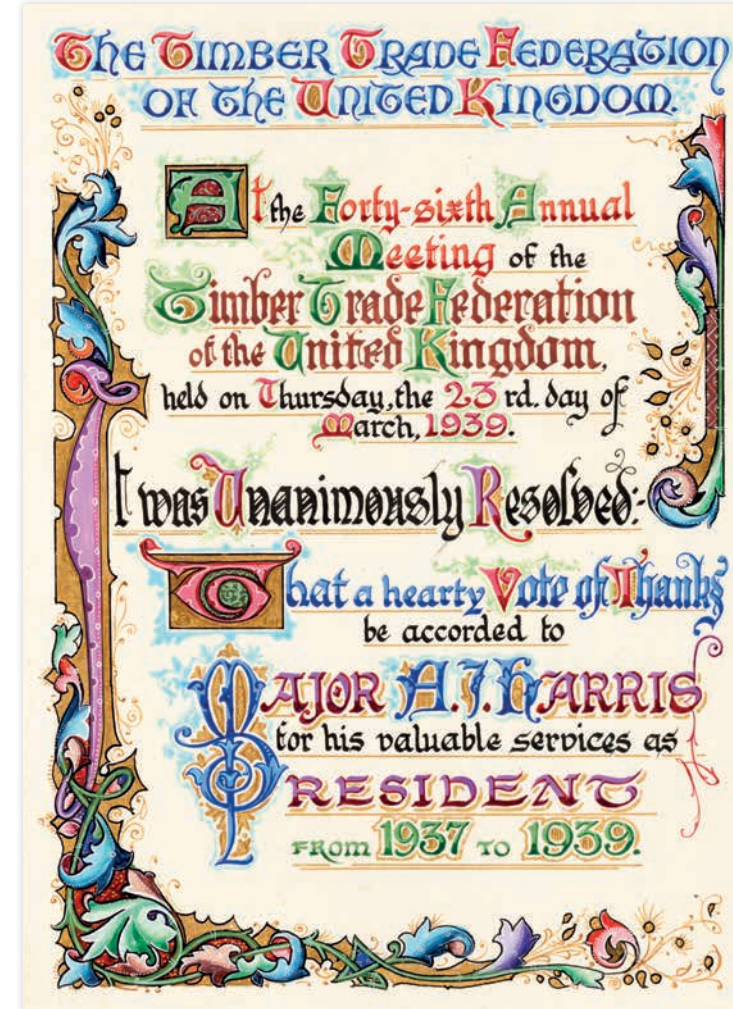 The Timber Trade Federation
of the United Kingdom.
At the Forty-sixth Annual
Meeting of the
Timber Trade Federation
of the United Kingdom,
held on Thursday, the 23 rd. day of
March, 1939.
It was Unanimously Resolved:-
That a hearty Vote of Thanks
be accorded to
MAJOR A. J. HARRIS
for his valuable services as
PRESIDENT
FROM 1937 TO 1939.